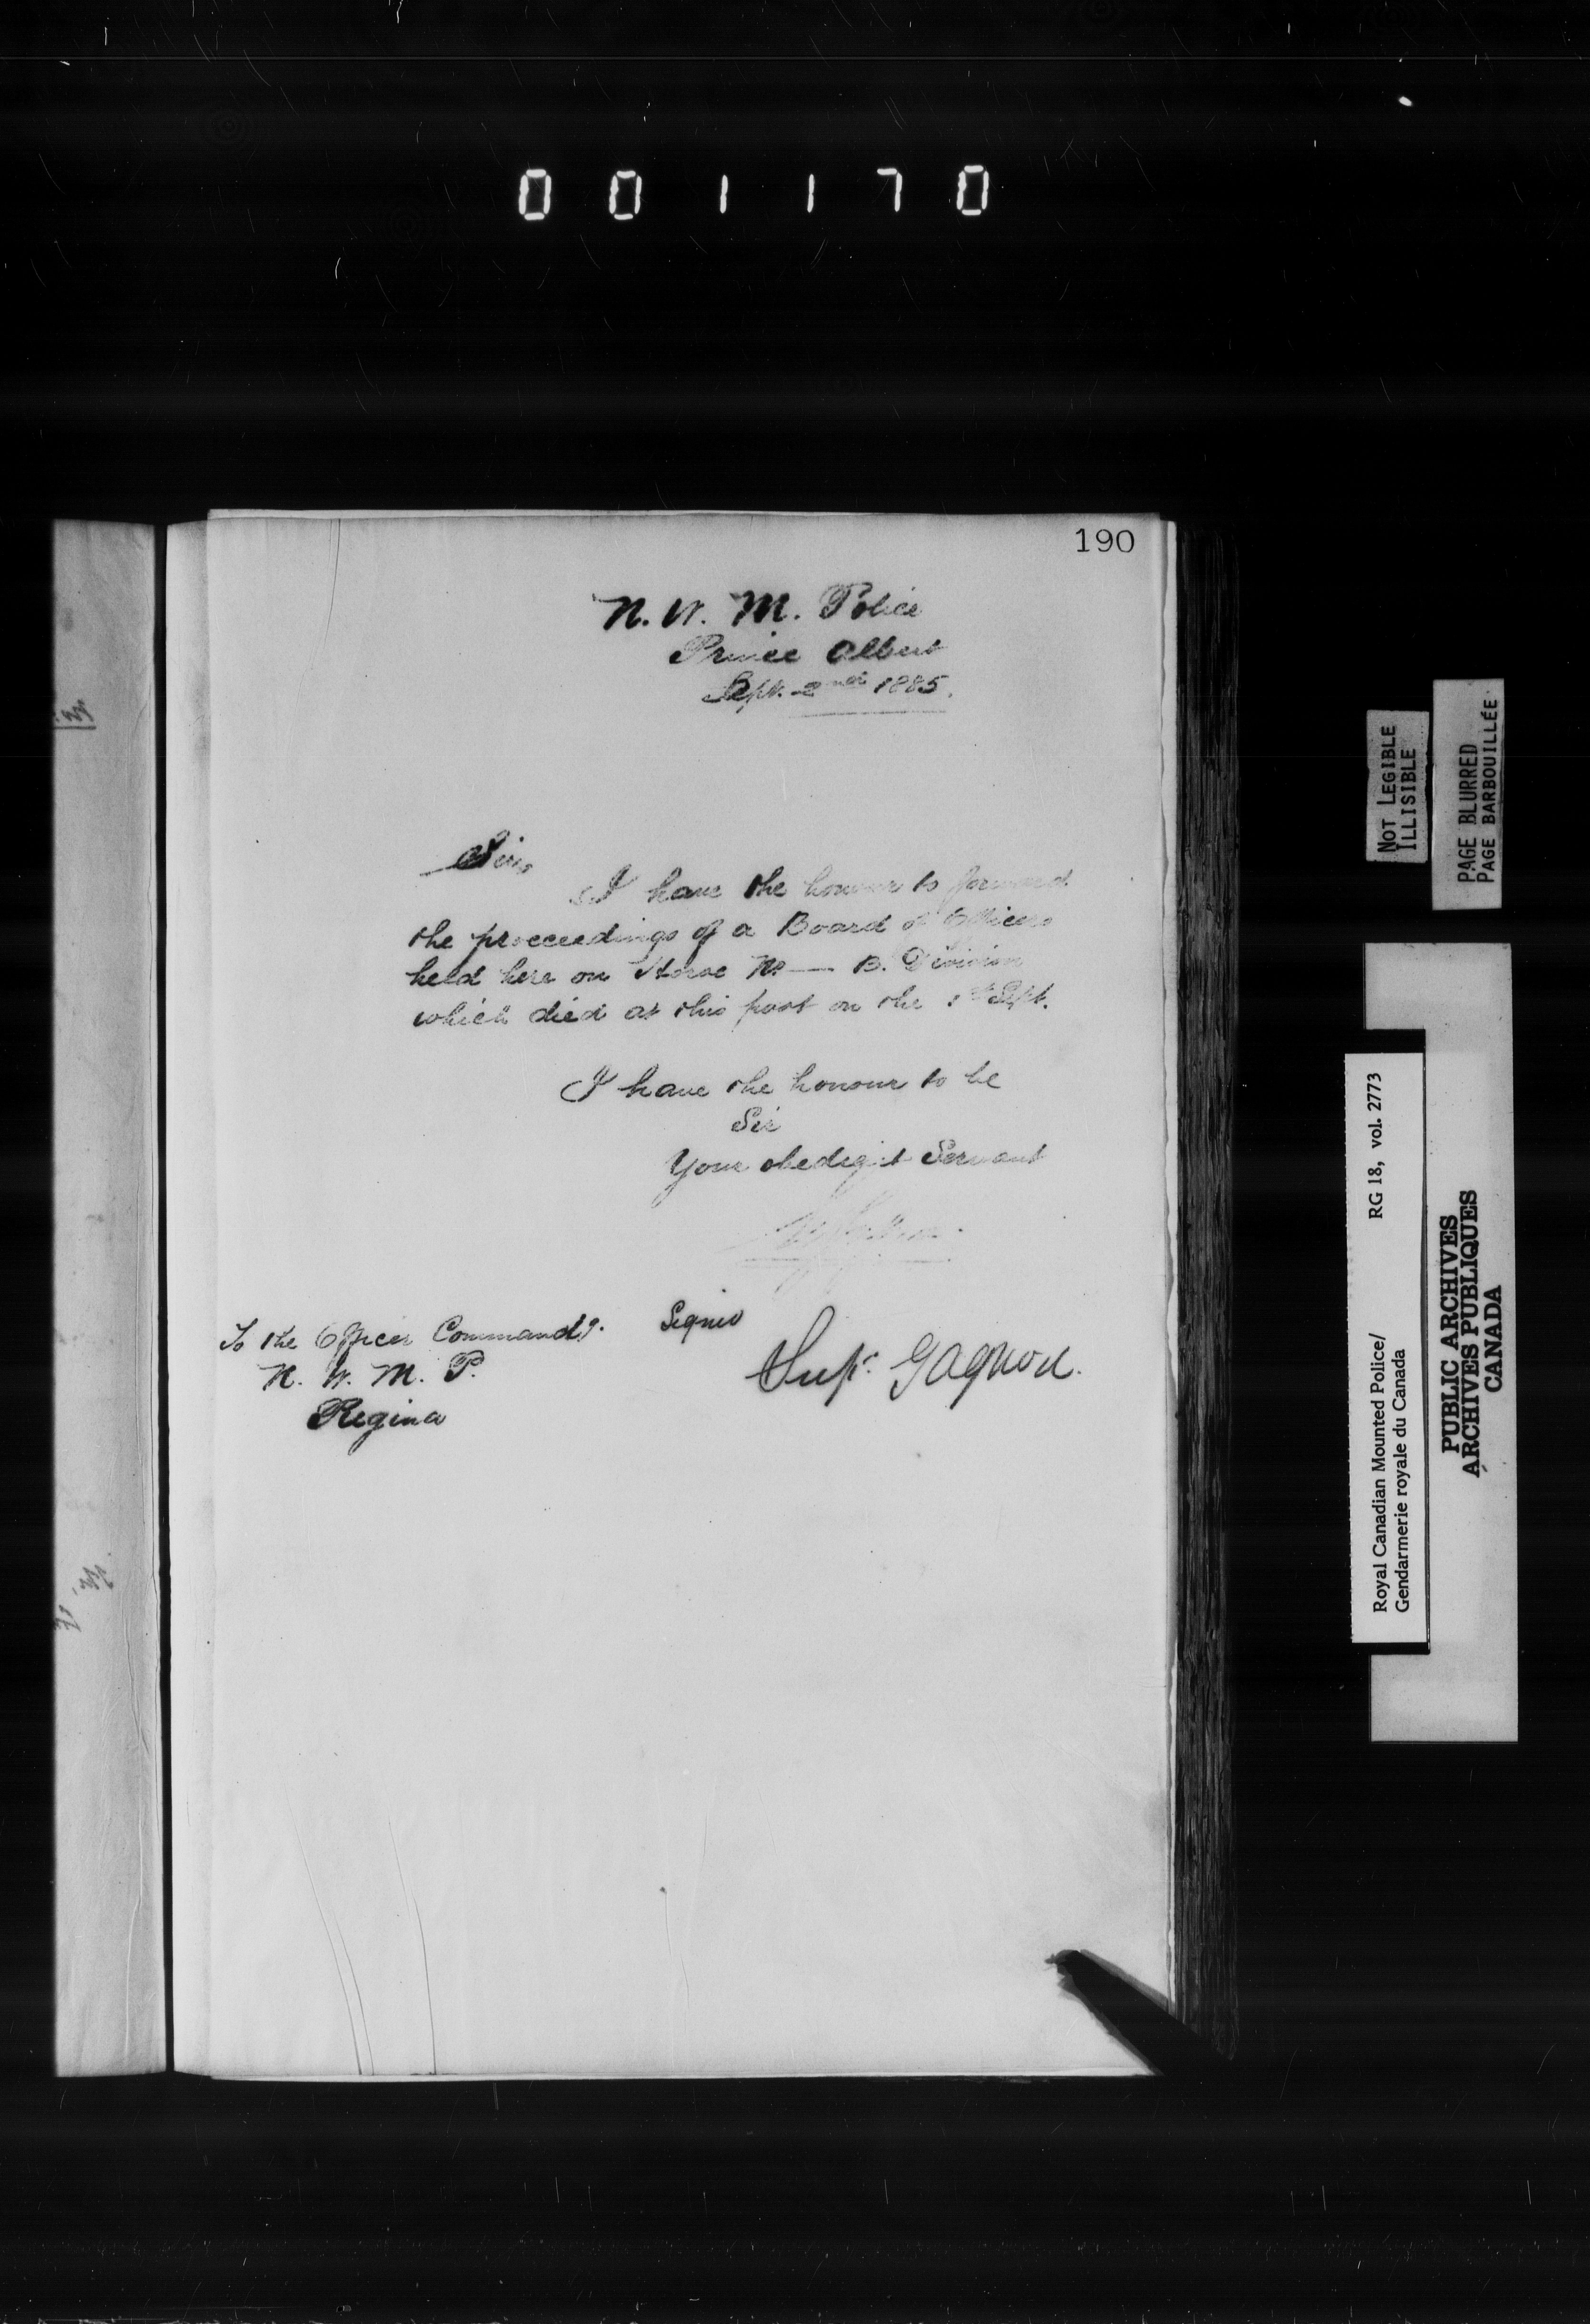 001170
190
N. W. M. Police
Prince Albert
Sept. 2nd 1885.
Sir,
I have the honour to forward
the proceedings of a Board of Officers
held here on Horse No — B. Division
which died at this post on the 1st Sept.
I have the honour to be
Sir
Your obedient Servant
To the Officer Commandg.
N. W. M. P.
Regina
Signed
Supt. Gagnon.
NOT LEGIBLE
ILLISIBLE
PAGE BLURRED
PAGE BARBOUILLÉE
Royal Canadian Mounted Police/ RG 18, vol. 2773
Gendarmerie royale du Canada
PUBLIC ARCHIVES
ARCHIVES PUBLIQUES
CANADA